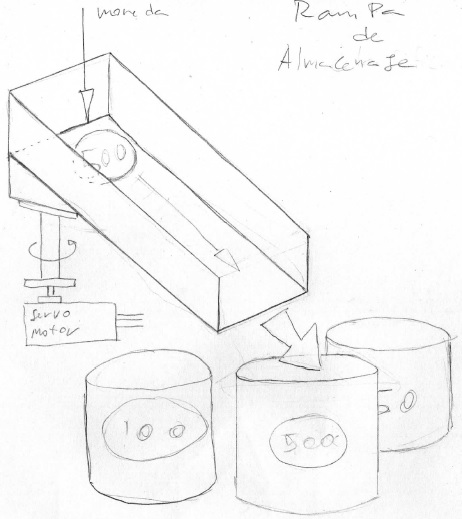 moneda
Rampa
de
Almacenaje
500
Servo
motor
100
500
50